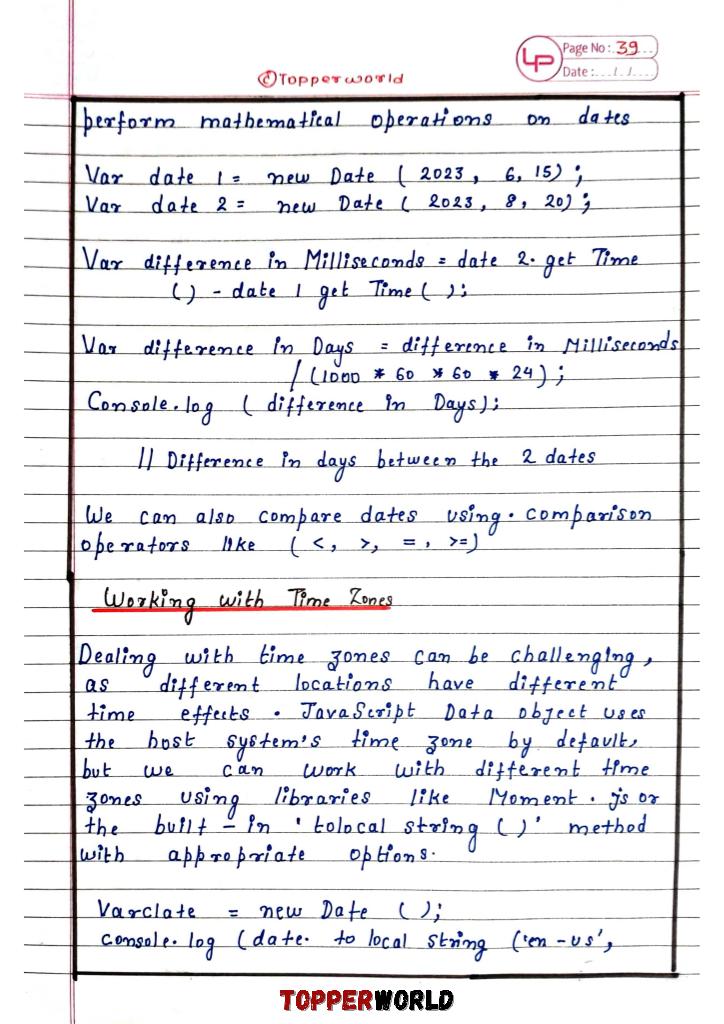 ©Topperworld
LP
Page No: 39
Date: / /
perform mathematical operations on dates
Var date 1 = new Date ( 2023 , 6, 15) ;
Var date 2 = new Date ( 2023 , 8, 20) ;
Var difference in Milliseconds = date 2. get Time
() - date 1 get Time ( );
Var difference in Days = difference in Milliseconds
/ (1000 * 60 * 60 * 24) ;
Console.log ( difference in Days);
// Difference in days between the 2 dates
We can also compare dates using. comparison
operators like ( <, >, =, >=)
Working with Time Zones
Dealing with time zones can be challenging,
as different locations have different
time effects. JavaScript Data object uses
the host system's time zone by default,
but we can work with different time
zones using libraries like Moment.js or
the built-in 'tolocal string ( )' method
with appropriate options.
Varclate = new Date ( );
console.log (date. to local string ('en-us',
TOPPERWORLD